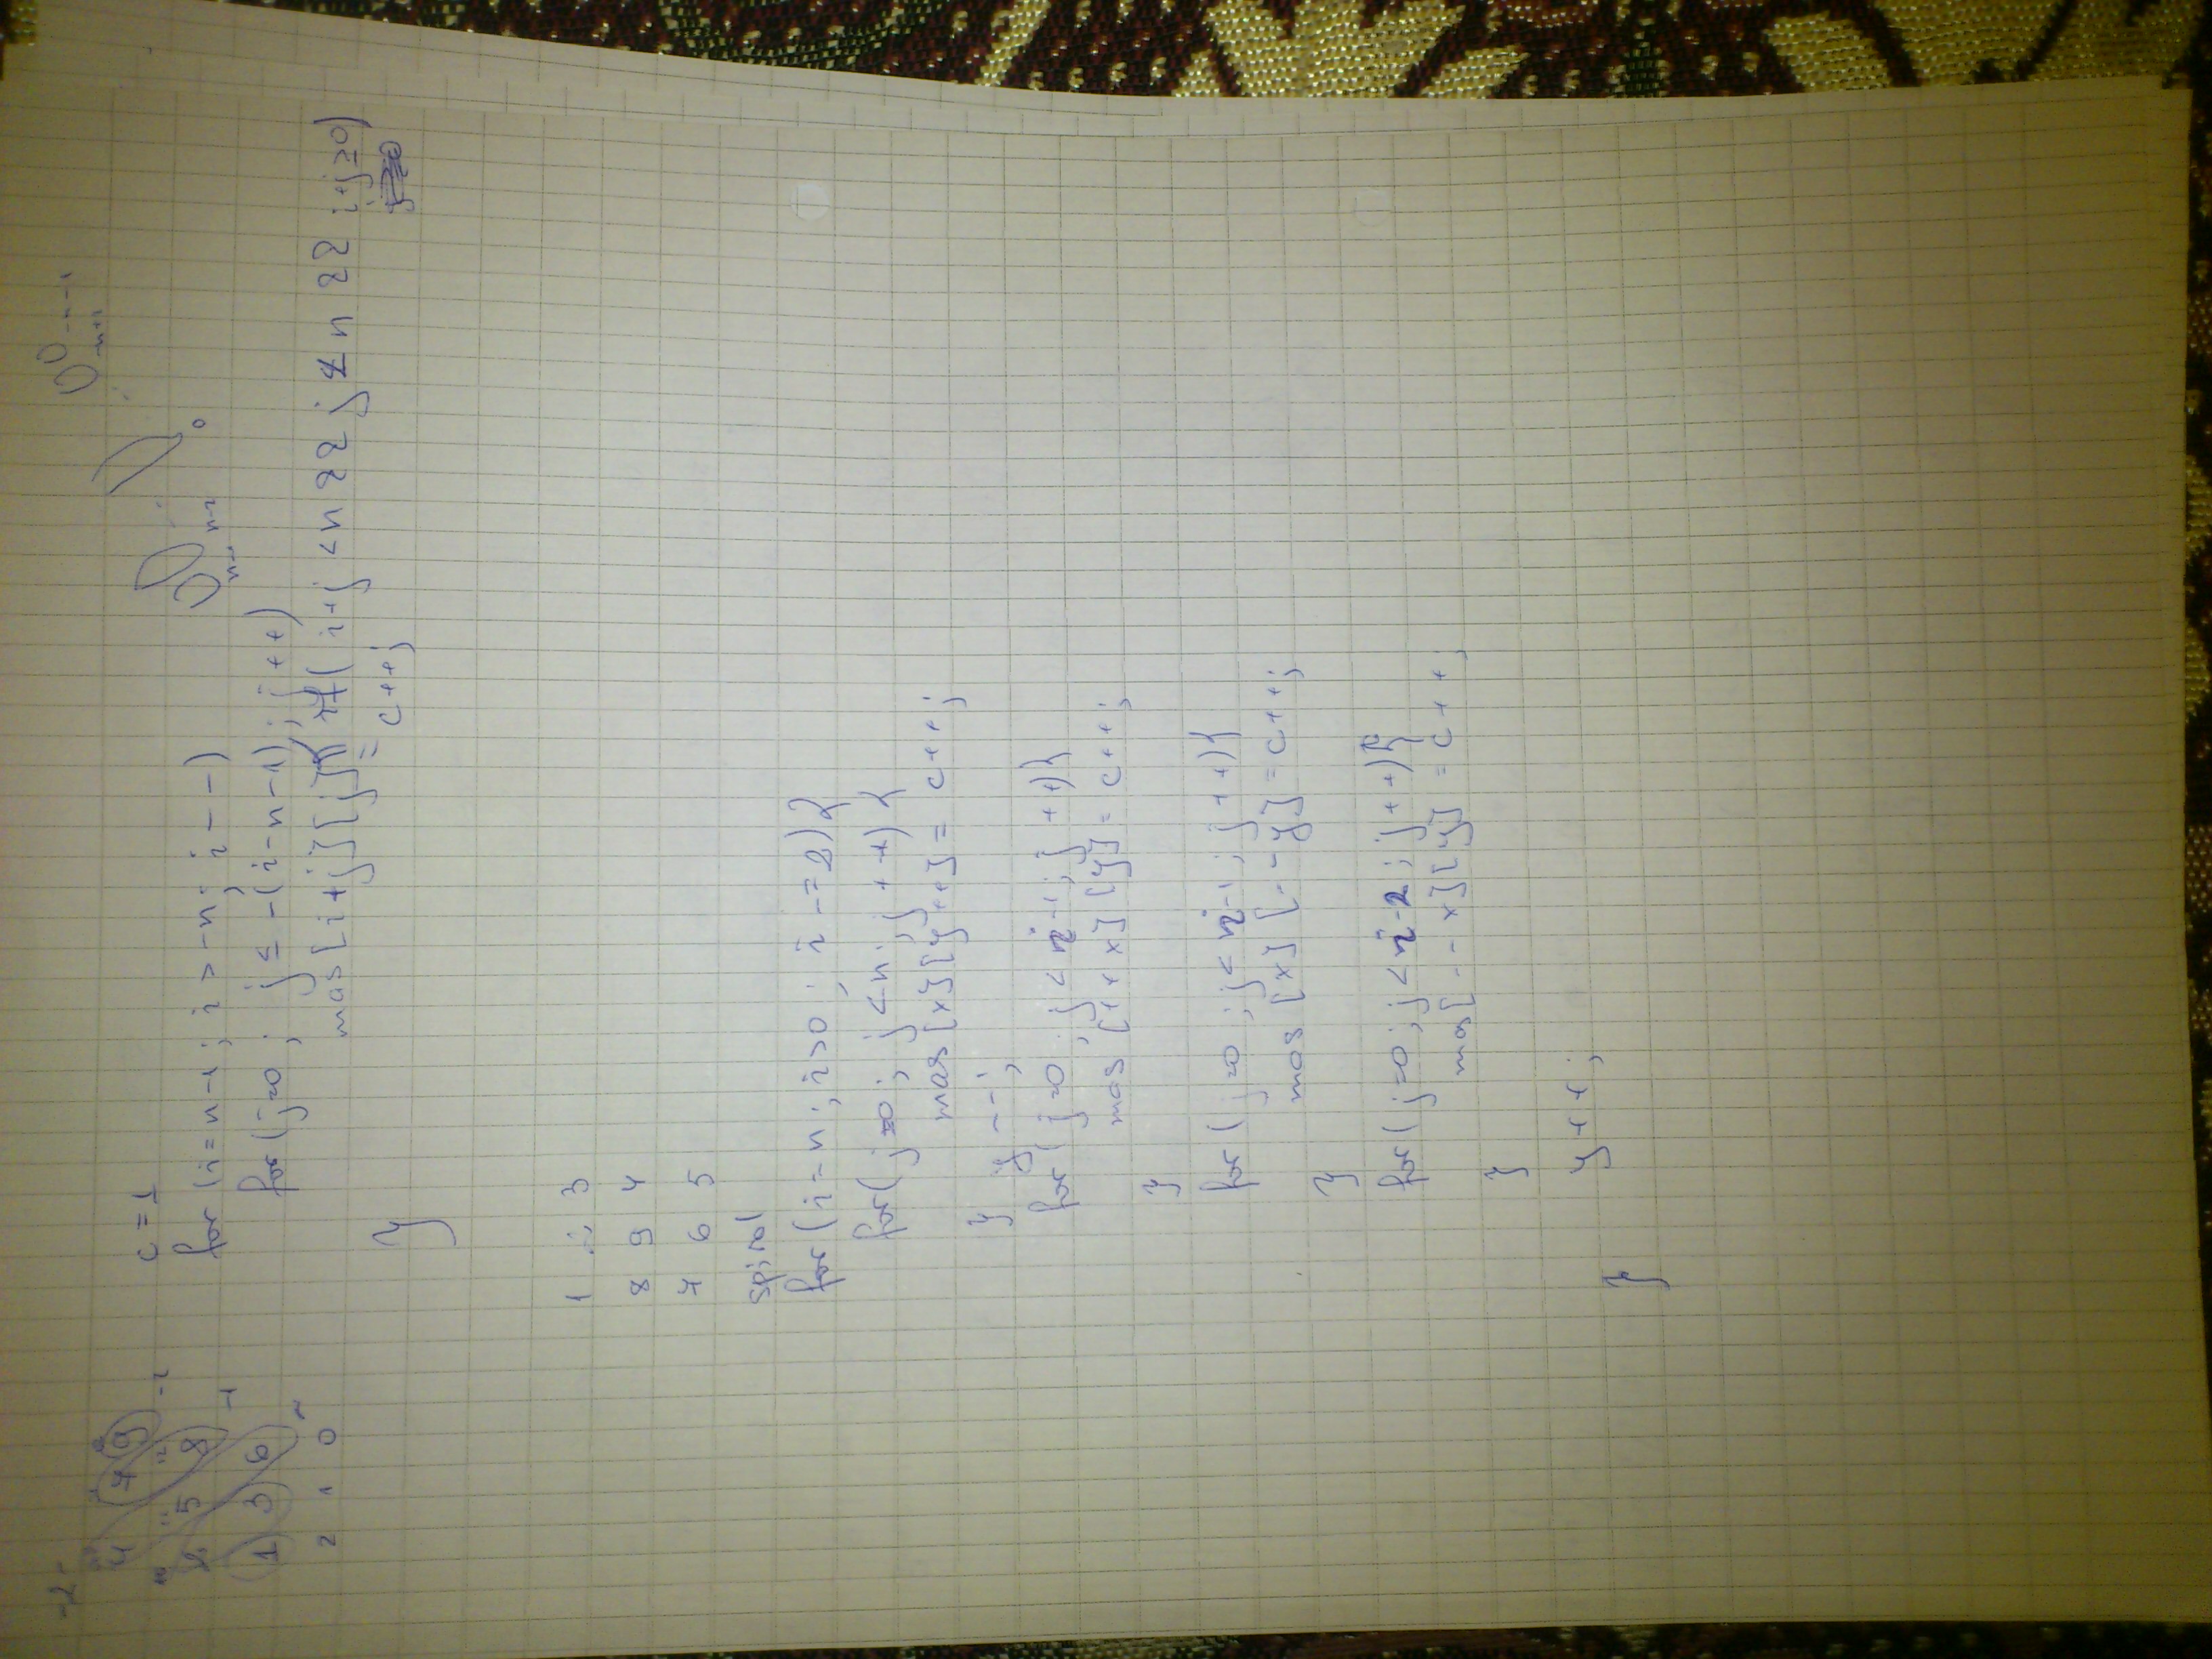 4 7 9
2 5 8
1 3 6
2 1 0
-2
-1
c=1
for (i=n-1; i>-n; i--)
for (j=0; j≤-(i-n-1); j++)
mas[i+j][j] if( i+j <n && j<n && i+j≥0)
= c++;
}
n-1
n-2
0
-n+1
-n-1
1 3
8 9 4
7 6 5
spiral
for (i=n; i>0; i-=2){
for(j=0; j<n; j++){
mas[x][y++]= c++;
} y--;
for(j=0; j<i-1; j++){
mas[++x][y]= c++;
}
for(j=0; j<i-1; j++){
mas[x][--y]=c++;
}
for(j=0; j<i-2; j++){
mas[--x][y]=c++;
}
y++;
}